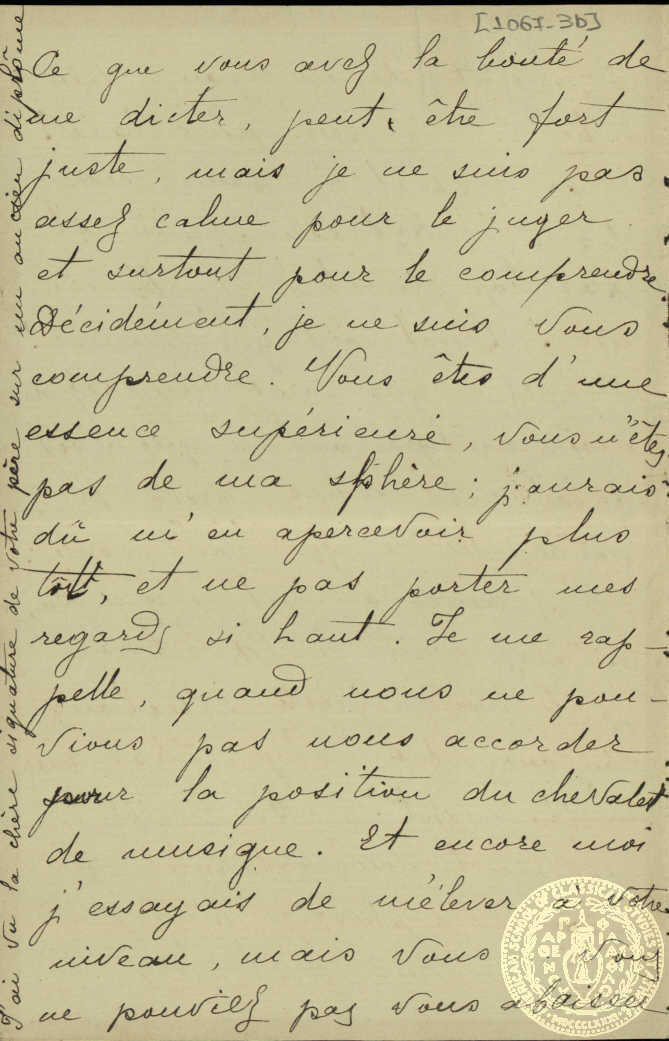 [1067-3b]
Ce que vous avez la bonté de
me dicter, peut, être fort
juste, mais je ne suis pas
assez calme pour le juger
et surtout pour le comprendre.
Décidément, je ne suis Vous
comprendre. Vous êtes d'une
essence supérieure, vous n'êtes
pas de ma sphère; j'aurais
dû m'en apercevoir plus
tôt, et ne pas porter mes
regards si haut. Je me rap-
pelle, quand nous ne pou-
vions pas nous accorder
pour la position du chevalet
de musique. Et encore moi
j'essayais de m'élever à votre
niveau, mais vous Vous
ne pouviez pas vous abaisser.
J'ai vu la chère signature de votre père sur un ancien diplôme